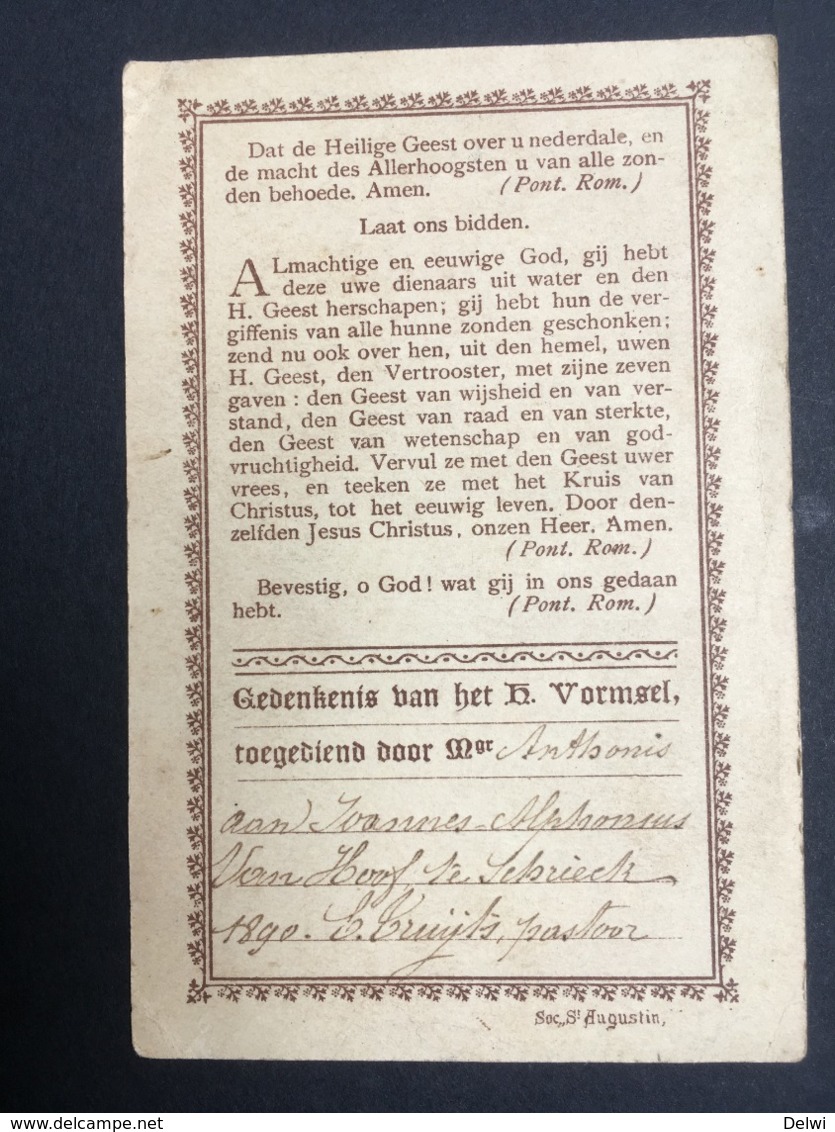 Dat de Heilige Geest over u nederdale, en
de macht des Allerhoogsten u van alle zon-
den behoede. Amen. (Pont. Rom.)
Laat ons bidden.
ALmachtige en eeuwige God, gij hebt
deze uwe dienaars uit water en den
H. Geest herschapen; gij hebt hun de ver-
giffenis van alle hunne zonden geschonken;
zend nu ook over hen, uit den hemel, uwen
H. Geest, den Vertrooster, met zijne zeven
gaven : den Geest van wijsheid en van ver-
stand, den Geest van raad en van sterkte,
den Geest van wetenschap en van god-
vruchtigheid. Vervul ze met den Geest uwer
vrees, en teeken ze met het Kruis van
Christus, tot het eeuwig leven. Door den-
zelfden Jesus Christus, onzen Heer. Amen.
(Pont. Rom.)
Bevestig, o God! wat gij in ons gedaan
hebt. (Pont. Rom.)
Gedenkenis van het H. Vormsel,
toegediend door Mgr Anthonis
aan Joannes-Alphonsus
Van Hoof te Schrieck
1890. C. Cruijts, pastoor
Soc. St Augustin,
www.delcampe.net
Delwi